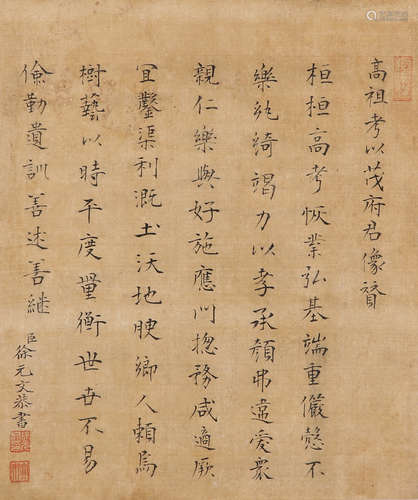 高祖考以茂府君像贊
桓桓高考恢業弘基端重儼愨不
樂紈綺竭力以孝承顏弗違愛衆
親仁樂與好施應門揔務咸適厥
宜鑿渠利溉土沃地腴鄉人賴焉
樹藝以時平度量衡世世不易
儉勤遺訓善述善继
臣徐元文恭書